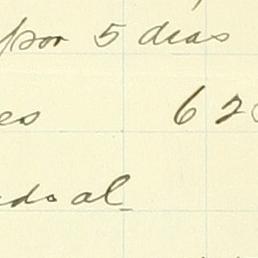 por 5 dias
es 62
ds al